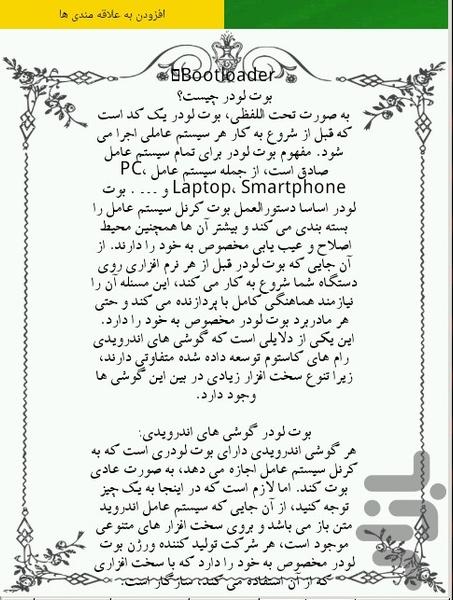 افزودن به علاقه مندی ها
Bootloader
بوت لودر چیست؟
به صورت تحت اللفظی، بوت لودر یک کد است
که قبل از شروع به کار هر سیستم عاملی اجرا می
شود. مفهوم بوت لودر برای تمام سیستم عامل
صادق است، از جمله سیستم عامل PC،
Laptop، Smartphone و ... . بوت
لودر اساسا دستورالعمل بوت کرنل سیستم عامل را
بسته بندی می کند و بیشتر آن ها همچنین محیط
اصلاح و عیب یابی مخصوص به خود را دارند. از
آن جایی که بوت لودر قبل از هر نرم افزاری روی
دستگاه شما شروع به کار می کند، این مسئله آن را
نیازمند هماهنگی کامل با پردازنده می کند و حتی
هر مادربرد بوت لودر مخصوص به خود را دارد.
این یکی از دلایلی است که گوشی های اندرویدی
رام های کاستوم توسعه داده شده متفاوتی دارند،
زیرا تنوع سخت افزار زیادی در بین این گوشی ها
وجود دارد.
بوت لودر گوشی های اندرویدی:
هر گوشی اندرویدی دارای بوت لودری است که به
کرنل سیستم عامل اجازه می دهد، به صورت عادی
بوت کند. اما لازم است که در اینجا به یک چیز
توجه کنید، از آن جایی که سیستم عامل اندروید
متن باز می باشد و بروی سخت افزار های متنوعی
موجود است، هر شرکت تولید کننده ورژن بوت
لودر مخصوص به خود را دارد که با سخت افزاری
که از آن استفاده می کند، سازگار است.
بازار